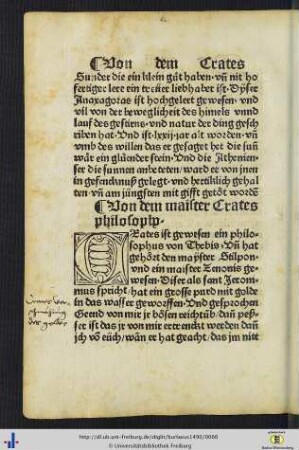 ¶Von dem Crates
Sunder die ein klein gůt haben· vñ nit ho
fertiger lere ein treüer liebhaber ist· Dyser
Anaxagoras ist hochgelert gewesen· vnd
vil von der beweglicheit des himels vnnd
lauf des gestirns· vnd natur der ding gesch
riben hat· Vnd ist·lxxij·iar alt worden· vñ
vmb des willen das er gesaget het die suñ
wår ein glüender stein· Vnd die Athenien
ser die sunnen anbeteten/ ward er von jnen
in gefencknuß gelegt· vnd hertiklich gehal
ten· vñ am jüngsten mit gifft getöt wordẽ
¶Von dem maister Crates
philosopho·
CRates ist gewesen ein philo
sophus von Thebis· Vñ hat
gehört den mayster Stilpon·
vnd ein maister Zenonis ge
wesen· Diser als sant Jeroni
mus spricht/ hat ein grosse purd mit golde
in das wasser geworffen· Vnd gesprochen
Geend von mir jr bösen reichtüb/ dañ pes
ser ist das jr von mir ertrenckt werden dañ
jch võ eüch/ wañ er hat geacht/ das jm nitt
der golds
http://dl.ub.uni-freiburg.de/diglit/burlaeus1490/0066
© Universitätsbibliothek Freiburg